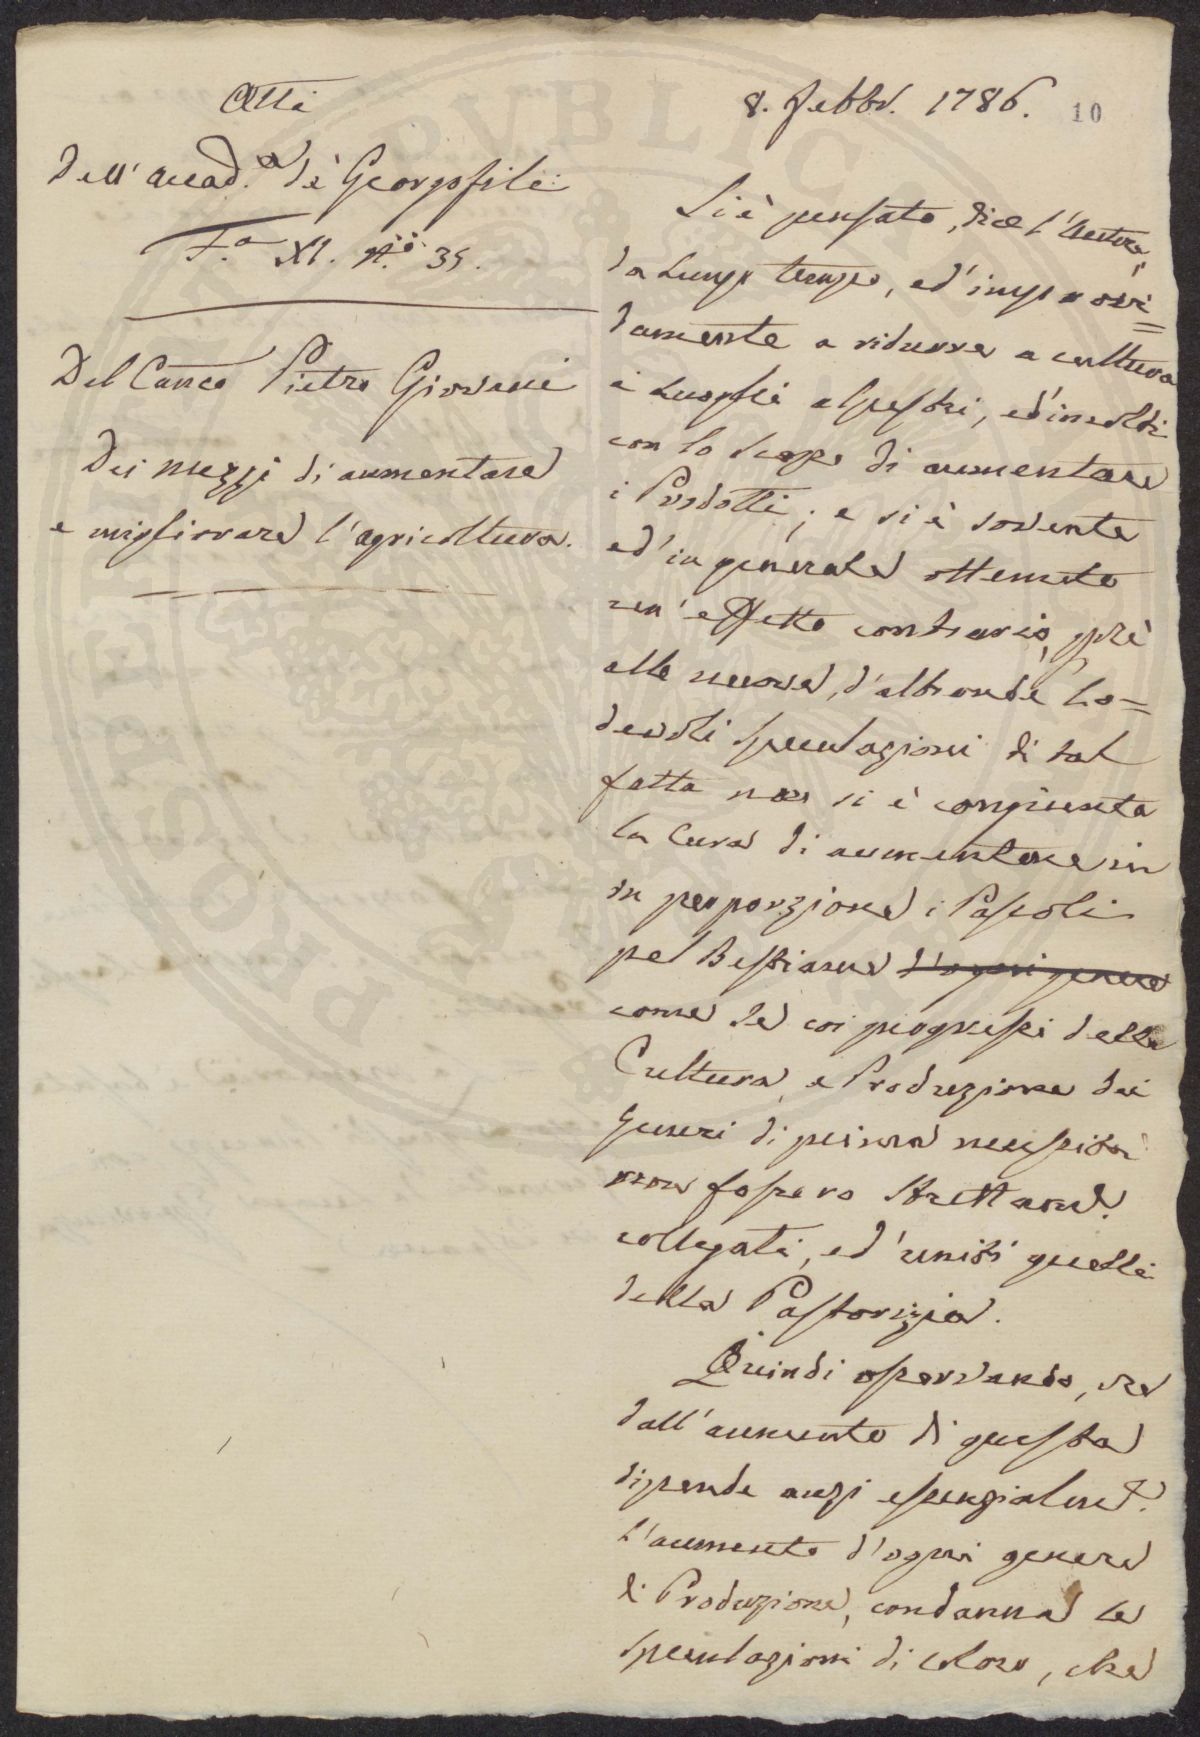 Atti
dell'Accad.a de' Georgofili
F.a XI. N.o 35.
Del Can.co Pietro Giovani
Dei mezzi di aumentare
e migliorare l'agricoltura.
8. Febbr. 1786.
10
Si è pensato, dice l'Autore,
da lungo tempo, ed'improvi=
damente a ridurre a cultura
i Luoghi alpestri, ed'incolti
con lo scopo di aumentare
i Prodotti; e si è sovente
ed'in generale ottenuto
un'effetto contrario, p.chè
alle nuove, d'altronde lo=
devoli speculazioni di tal
fatta non si è congiunta
la cura di aumentare in
in proporzione i Pascoli
pel Bestiame d'ogni genere
come se coi progressi della
Cultura, e Produzione dei
generi di prima necessità
non fossero strettam.e
collegati, ed'uniti quelli
della Pastorizia.
Quindi osservando, che
dall'aumento di questa
dipende anzi essenzialm.e
l'aumento d'ogni genere
di Produzione, condanna le
speculazioni di coloro, che